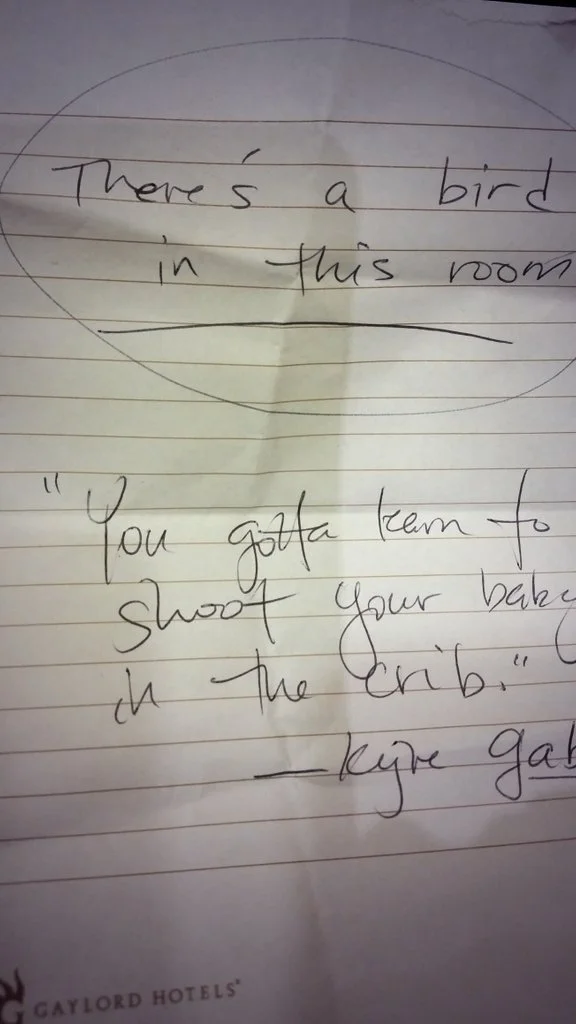 There's a bird
in this room
"You gotta learn to
shoot your baby
in the crib."
— Kyre gab
GAYLORD HOTELS®